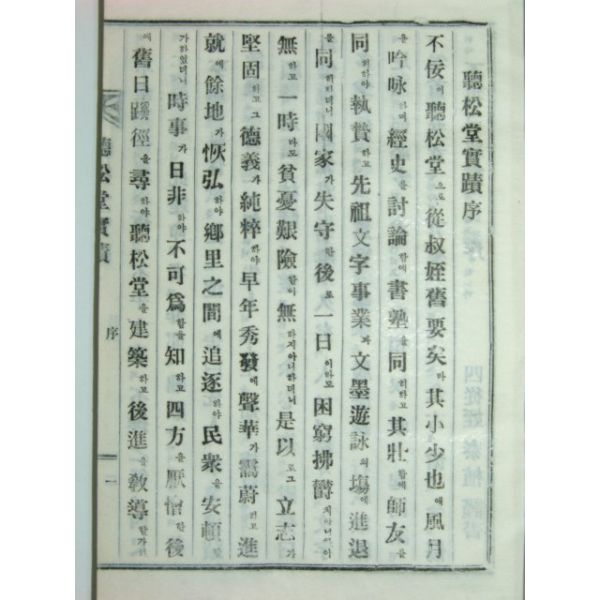 聽松堂實蹟序
不佞이聽松堂으로從叔姪舊要矣라其小少也에風月
을吟咏하며經史를討論함에書塾을同히하고其壯함에師友를
同히하야執贄하고先祖文字事業과文墨遊詠의場에進退
를同히하더니國家가失守한後로一日이라도困窮拂鬱치아니함이
無하고一時라도貧憂艱險함이無하지아니하되是以로그立志가
堅固하고그德義가純粹하야早年秀發에聲華가霱蔚하고進
就에餘地가恢弘하야鄕里之間에追逐하야民衆을安頓
가하얏더니時事가日非하야不可爲함을知하고四方을厭憎한後
에舊日蹊徑을尋하야聽松堂을建築하고後進을敎導할가
聽松堂實蹟
序
一